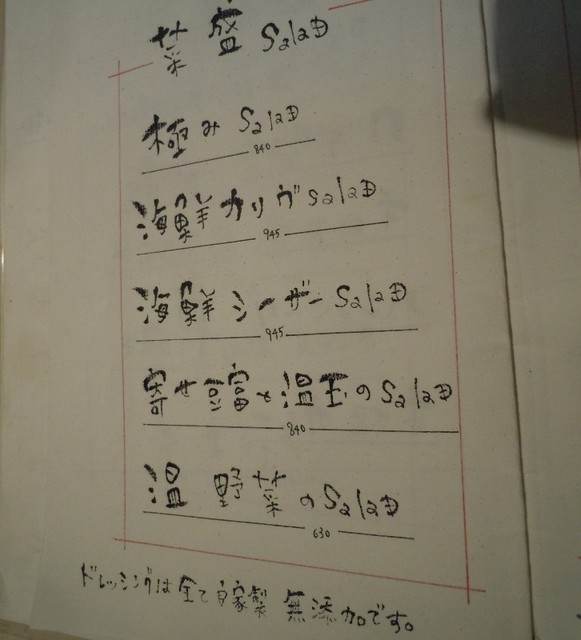 菜盛 SalaD
極み SalaD
840
海鮮カリヴ SalaD
945
海鮮シーザー SalaD
945
寄せ豆富と温玉の SalaD
840
温野菜の SalaD
630
ドレッシングは全て自家製 無添加です。